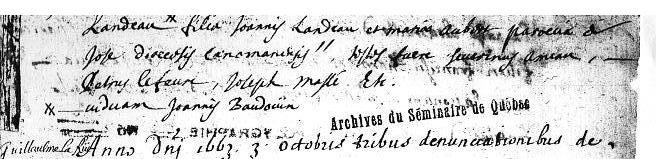 Landeau × filia Joannis Landeau et maria aubert parocia d
Jose diocesis Cenomanensis" testes fuere severinus ameau, —
Petrus lefeure, Joseph Maslé Etc.
× — viduam Joannis Baudouin
Archives du Séminaire de Québec
Guilleulme la Anno Dni 1663 3 octobris tribus denunciationibus de